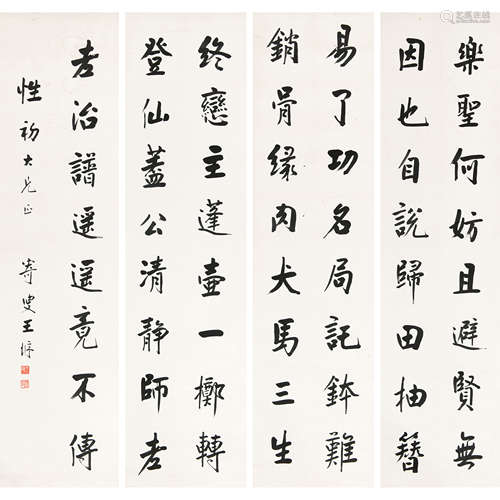 樂聖何妨且避賢無
因也自說歸田抽簪
易了功名局託鉢難
銷骨緣肉犬馬三生
終戀主蓬壺一擲轉
登仙蓋公清靜師老
老治譜遥遥竟不傳
性初大兄正
寄叟王修